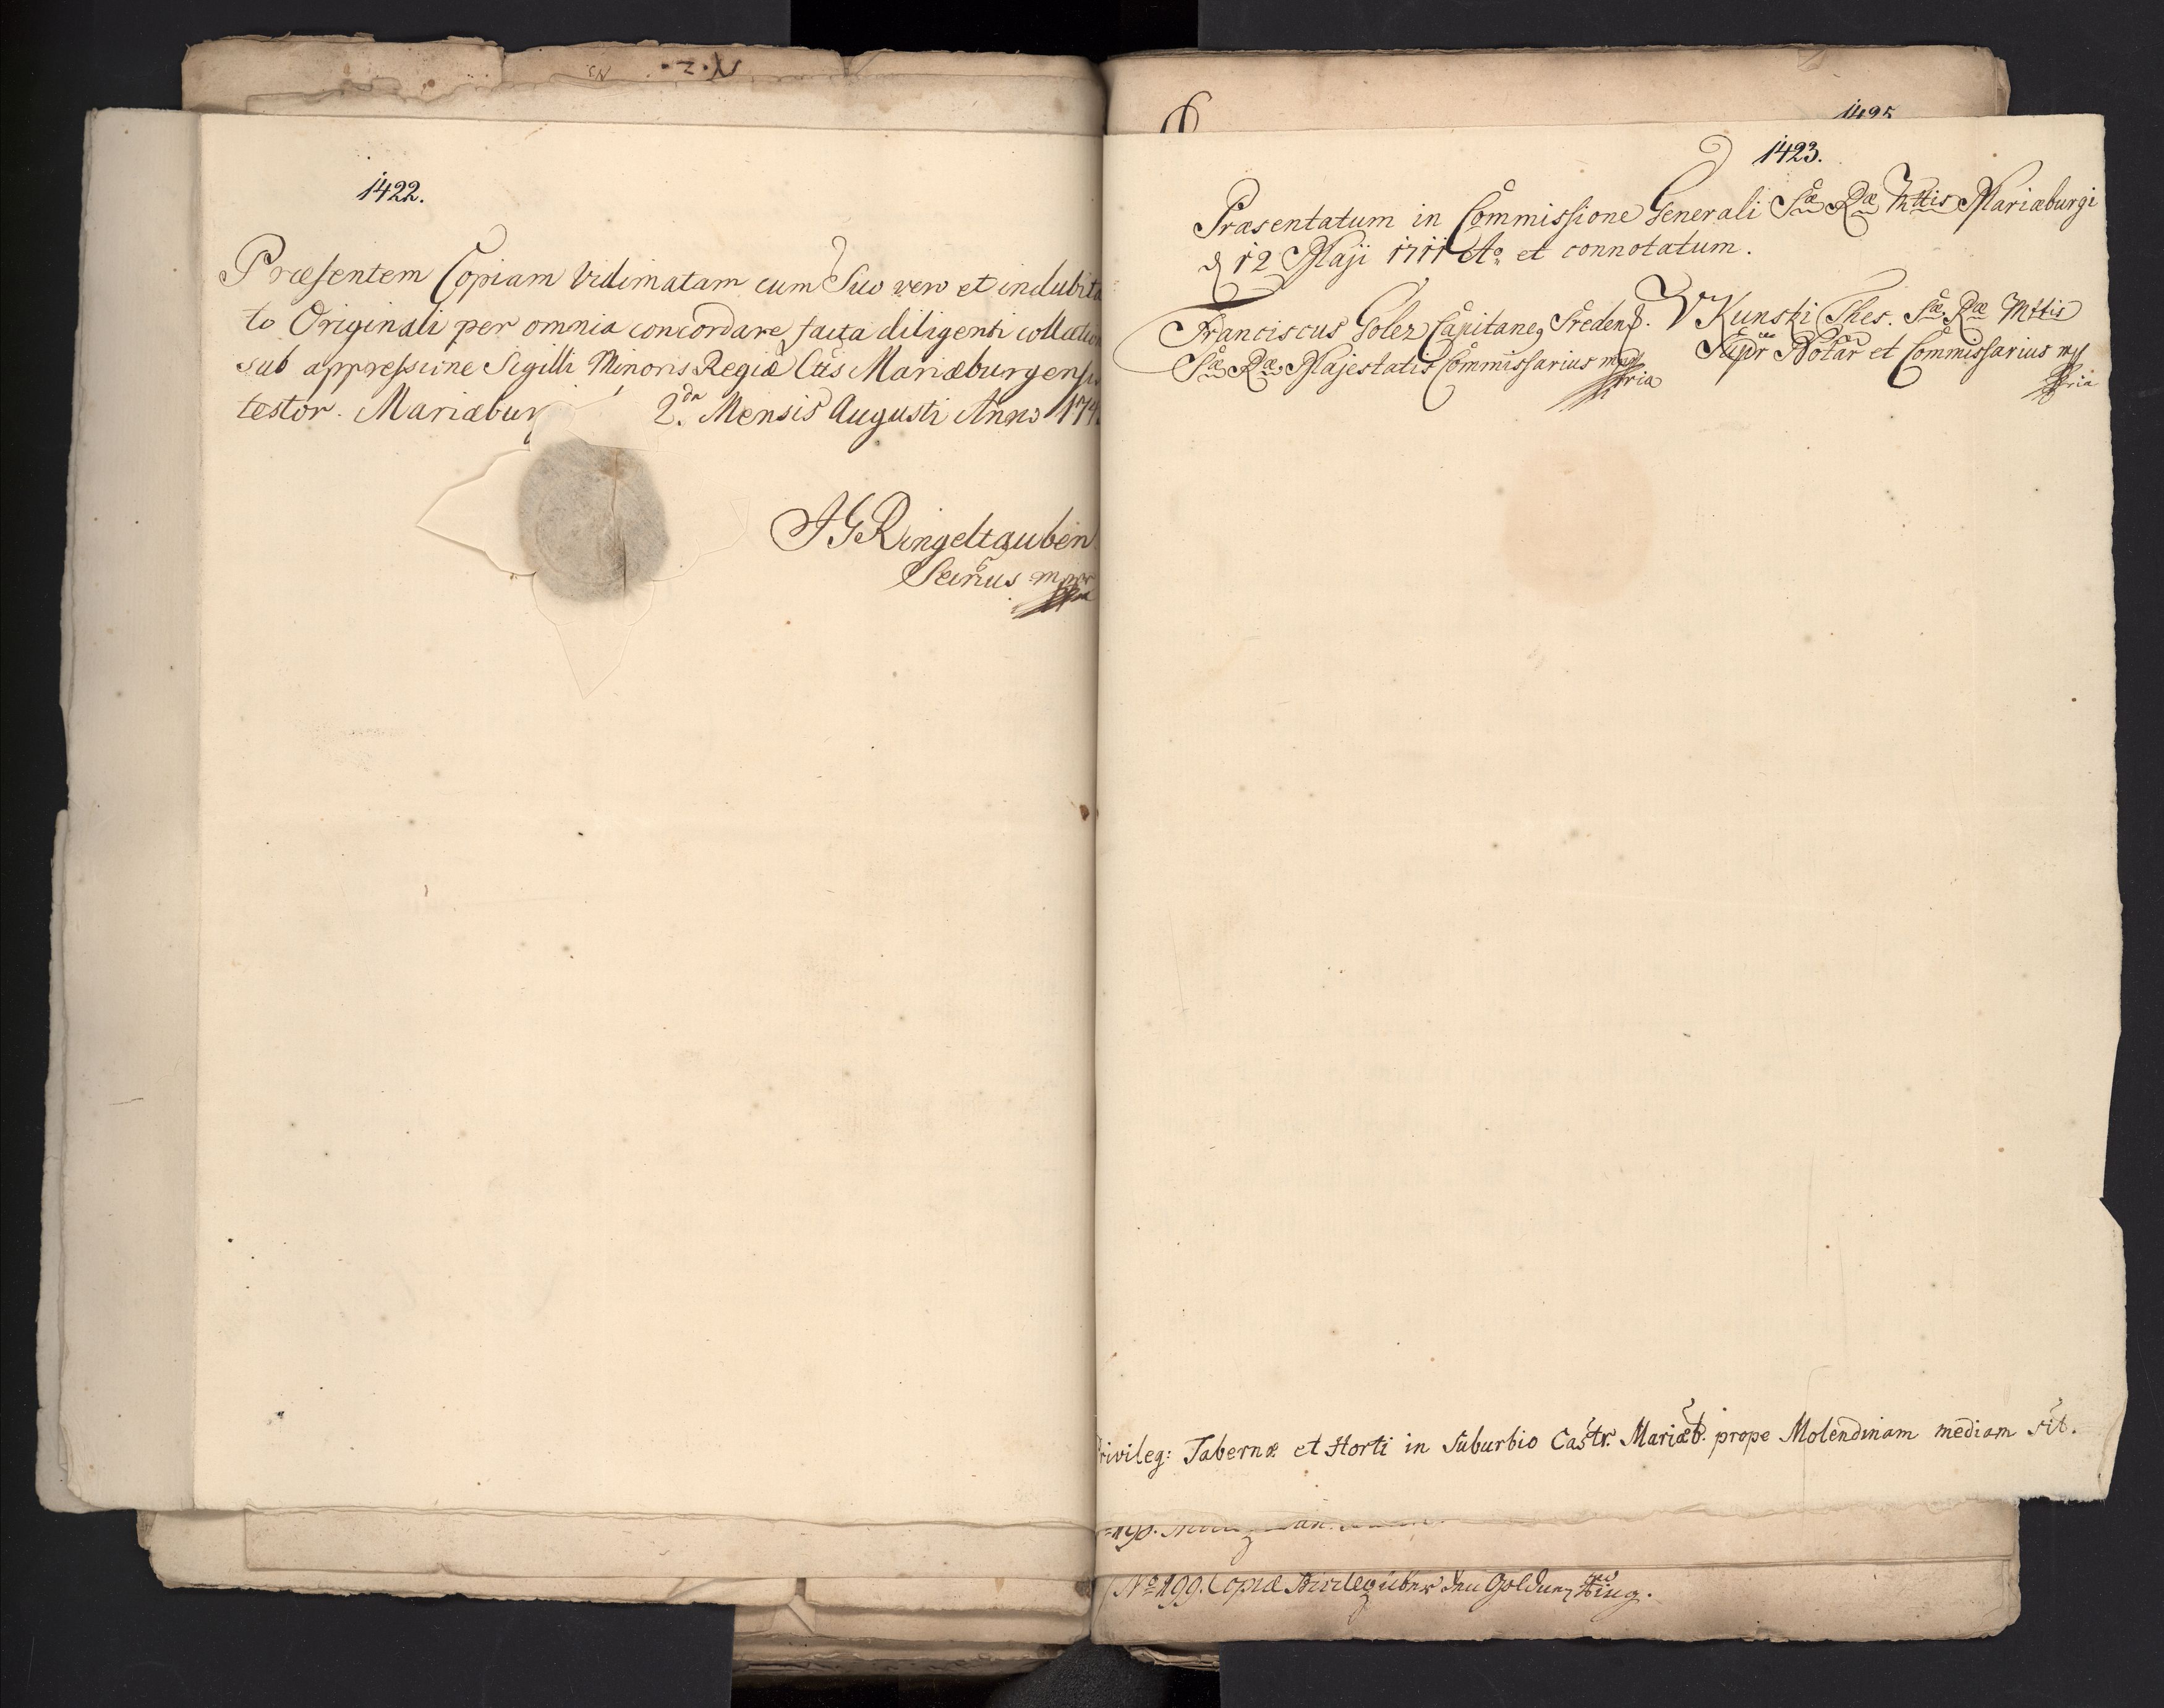 1422.
Præsentem Copiam Vidimatam cum Suo vero et indubita
to Originali per omnia concordare, facta diligenti collation
sub appressione Sigilli Minoris Regiæ Cttis Mariæburgensis
testor. Mariæbur 2.da Mensis Augusti Anno 174
JGRingeltauben
Secrius mppr
1425
1423.
Præsentatum in Commissione Generali Sæ Ræ Mttis Mariæburgi
d 12 Maji 1711 Ao et connotatum.
Franciscus Golez Capitaneg Sredens. VKunski Thes. Sæ Ræ Mttis
Sæ Ræ Majestatis Commissarius mpp Supr Notar et Commissarius mp
pria pria
rivileg: Tabernæ et Horti in Suburbio Castr. Mariæb. prope Molendinam mediam sit.
No 199. Copia Privileg über den Goldnen Ring.